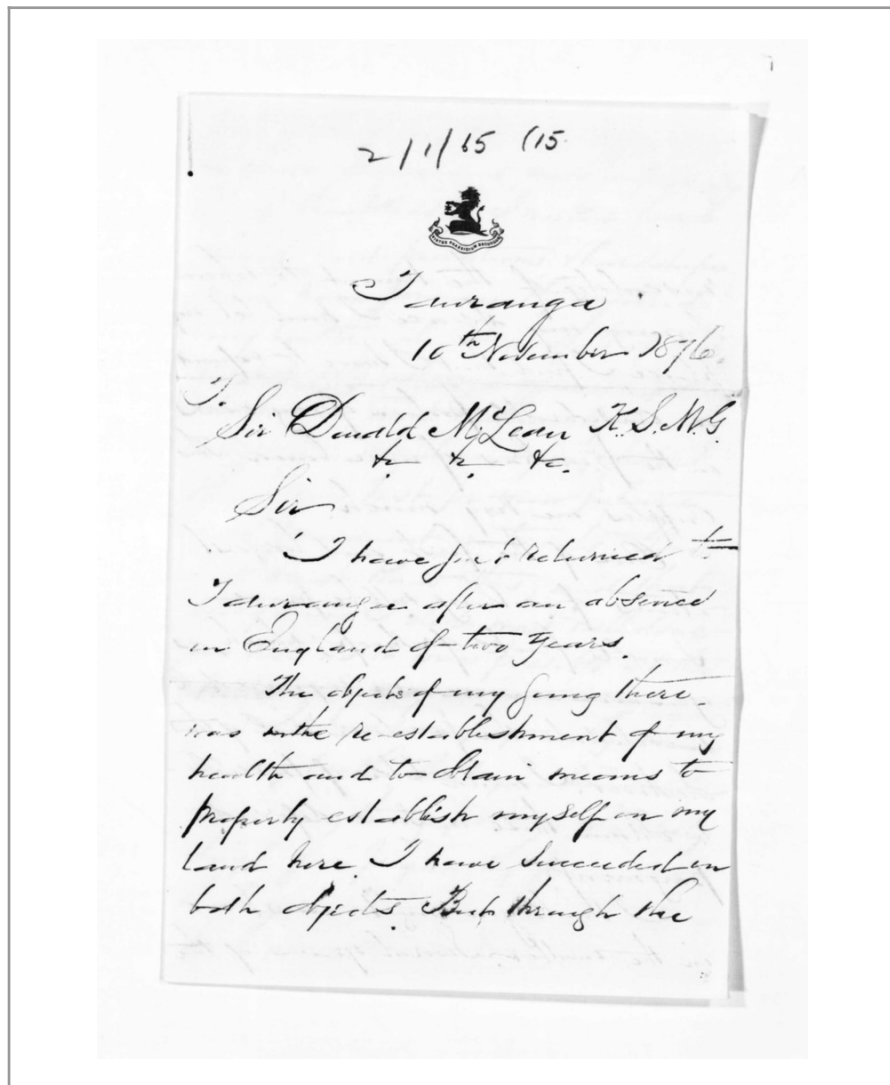 2/1/65 (15.
Tauranga
10th November 1876.
To
Sir Donald McLean K.S.M.G.
&c &c &c.
Sir
I have just returned to
Tauranga after an absence
in England of two years.
The objects of my going there
was the re-establishment of my
health and to obtain means to
properly establish myself on my
land here. I have succeeded in
both objects. But through the